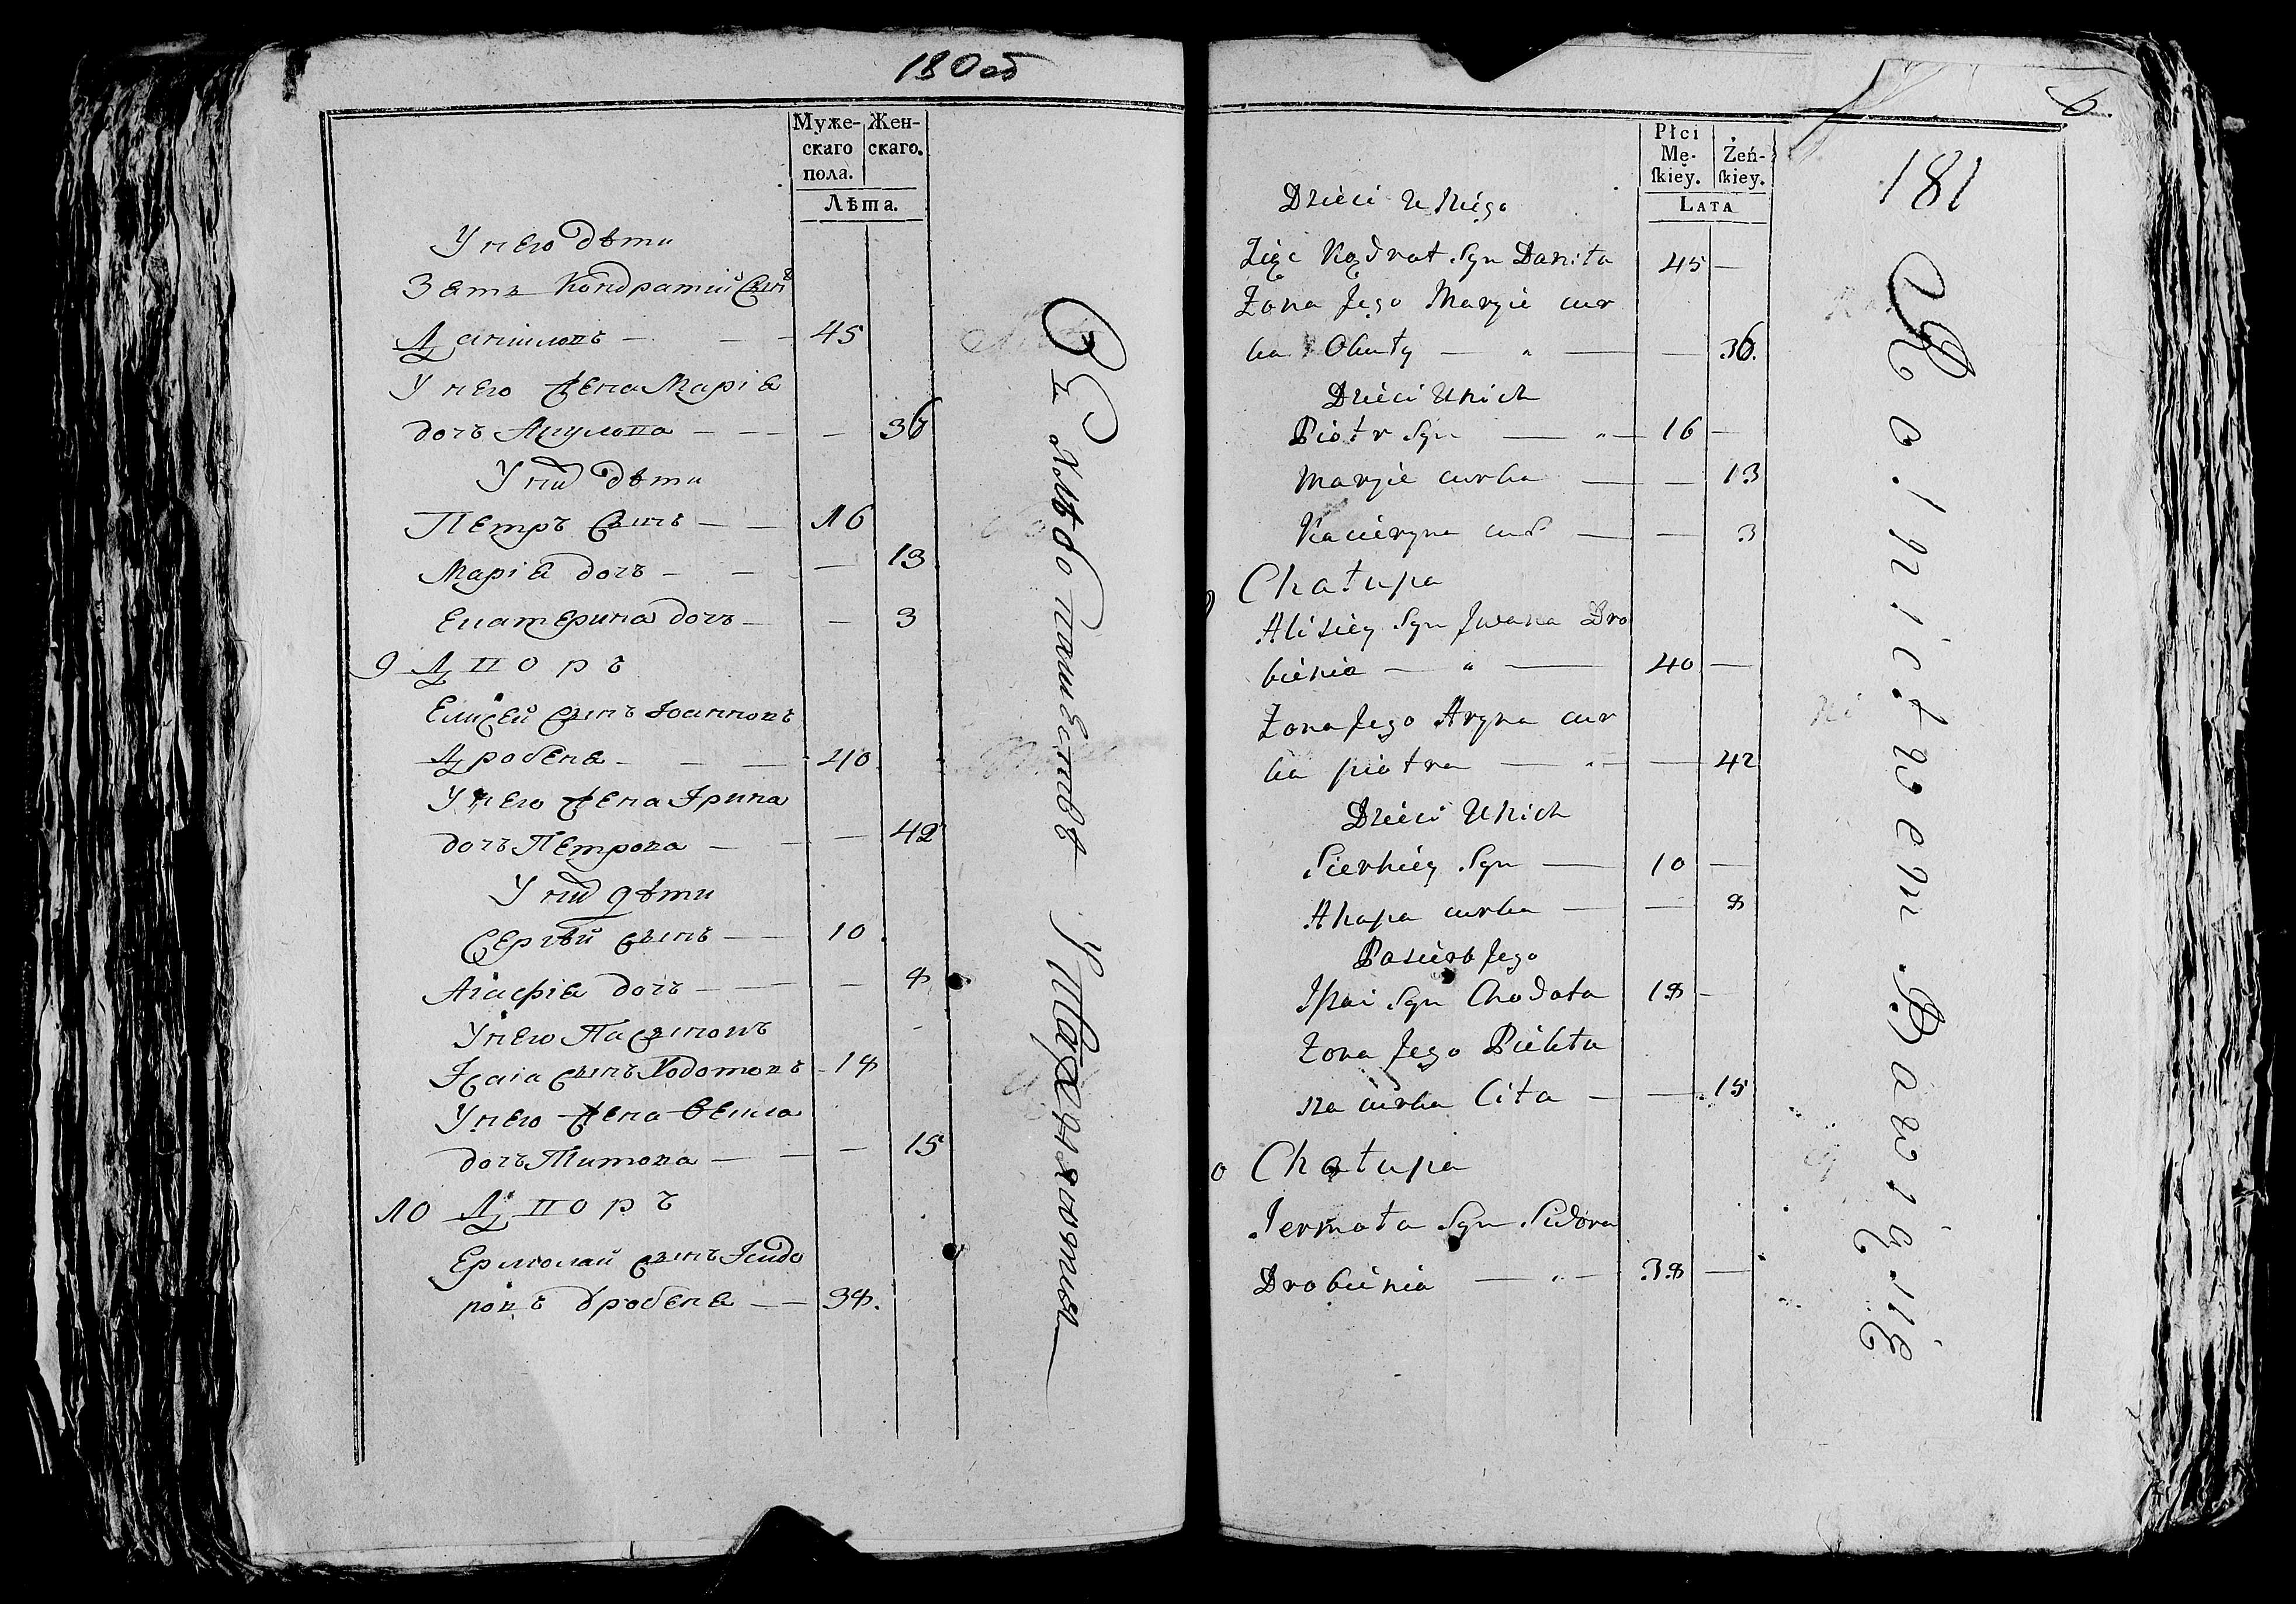 180 об
Муже- Жен-
скаго скаго.
пола.
Лѣта.
У него дѣти
Зять Кондратий Сынъ
Даниловъ — — — 45
У него Жена Марія
дочь Акулова — — — — 36
У ных дѣти
Петръ Сынъ — — 16
Марія дочь — — — 13
Екатерина дочь — — 3
9 Дворъ
Елисей Сынъ Іоанновъ
Дробеня — — — 40
У него Жена Ірина
дочь Петрова — — — 42
У ных дѣти
Сергѣй сынъ — — 10
Агафія дочь — — — — 8
У него Пасынокъ
Ісаіа сынъ Ходотовъ — 18
У него Жена Ѳекла
дочь Титова — — — 15
10 Дворъ
Ермолай сынъ Ісидо
ровъ дробеня — — 38.
Въ Хлѣбопашествѣ Упражняются
6
181
Płci
Mę- Żeń-
ſkiey. ſkiey.
LATA
Dzieci u Niego
Zięc Kądrat Syn Daniła
45 —
Zona Jego Maryie cur
ka Okuły — " — — 36.
Dzieci Unich
Piotr Syn — " — 16 —
Maryie curka — — 13
Kacieryna cur — — 3
Chałupa
Alisiey Syn Jwana Dro
bienia — " — 40 —
Zona Jego Aryna cur
ka piotra — " — — 42
Dzieci Unich
Sierhiey Syn — 10 —
Ahapa curka — — 8
Pasierb Jego
Isai Syn Chodota 18 —
Zona Jego Piekłu
na curka Cita — — 15
0 Chałupa
Jermoła Syn Sidora
Drobienia — " — 38 —
Rolnictwem Bawią się